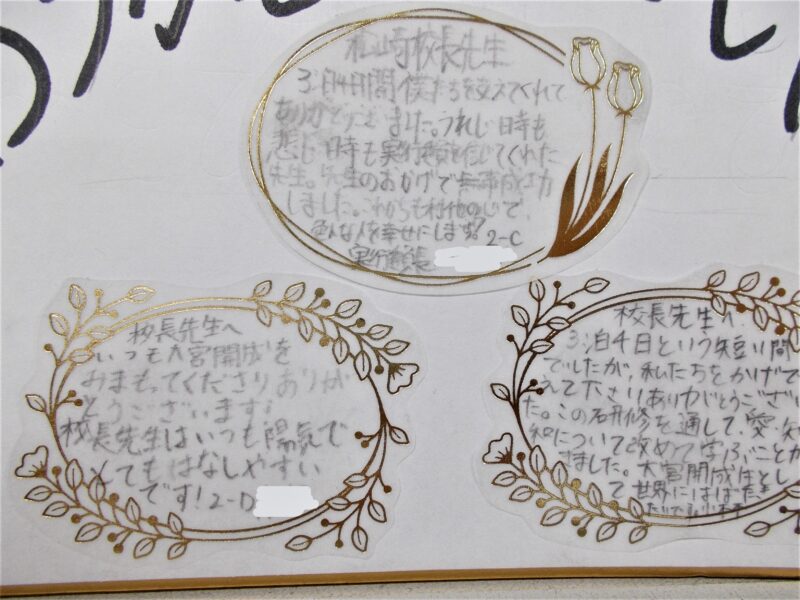 ありがとう
松崎校長先生
3泊4日間僕たちを支えてくれて
ありがとうございました。うれしい時も
悲しい時も実行委員を信じてくれた
先生。先生のおかげで無事成功
しました。これからも
色んな人を幸せにします! 2-C
実行委員長
校長先生へ
いつも大宮開成を
みまもってくださりありが
とうございます!
校長先生はいつも陽気で
とてもはなしやすい
です! 2-D
校長先生へ
3泊4日という短い間
でしたが、私たちをかげで
支えて下さりありがとうござい
た。この研修を通して、愛・
和について改めて学ぶことが
きました。大宮開成生とし
て世界にはばたき